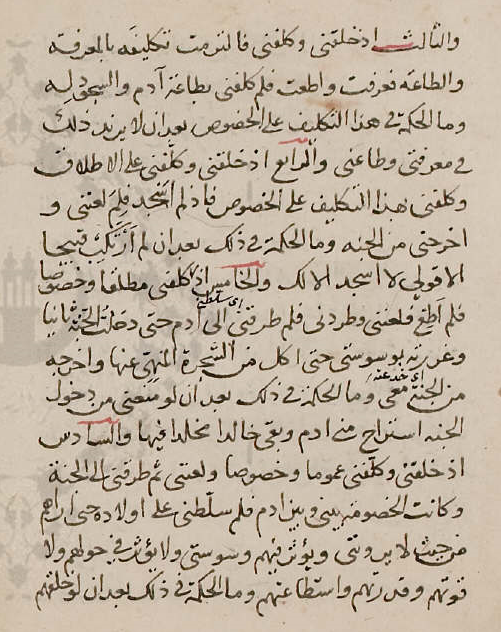 والثالث اذ خلقني وكلفني فالتزمت تكليفه بالمعرفة
والطاعة فعرفت واطعت فلم كلفني بطاعة آدم والسجود له
وما الحكمة في هذا التكليف على الخصوص بعد ان لا يزيد ذلك
في معرفتي وطاعتي والرابع اذ خلقني وكلفني على الاطلاق
وكلفني بهذا التكليف على الخصوص فاذ لم اسجد فلم لعنني و
اخرجني من الجنة وما الحكمة في ذلك بعد ان لم أرتكب قبيحا
الا قولي لا اسجد الا لك والخامس اذ كلفني مطلقا وخصوصا
فلم اطع فلعنني وطردني فلم طرقني الى آدم حتى دخلت الجنة ثانيا
وغررته بوسوستي حتى اكل من الشجرة المنهي عنها واخرجه
من الجنة معي وما الحكمة في ذلك بعد ان لو منعني من دخول
الجنة استراح مني ادم وبقي خالدا مخلدا فيها والسادس
اذ خلقني وكلفني عموما وخصوصا ولعنني ثم طرقني الى الجنة
وكانت الخصومة بيني وبين ادم فلم سلطني على اولاده حتى اراهم
من حيث لا يرونني ويؤثر فيهم وسوستي ولا يؤثر في حولهم ولا
قوتهم وقدرتهم واستطاعتهم وما الحكمة في ذلك بعد ان لو خلقهم